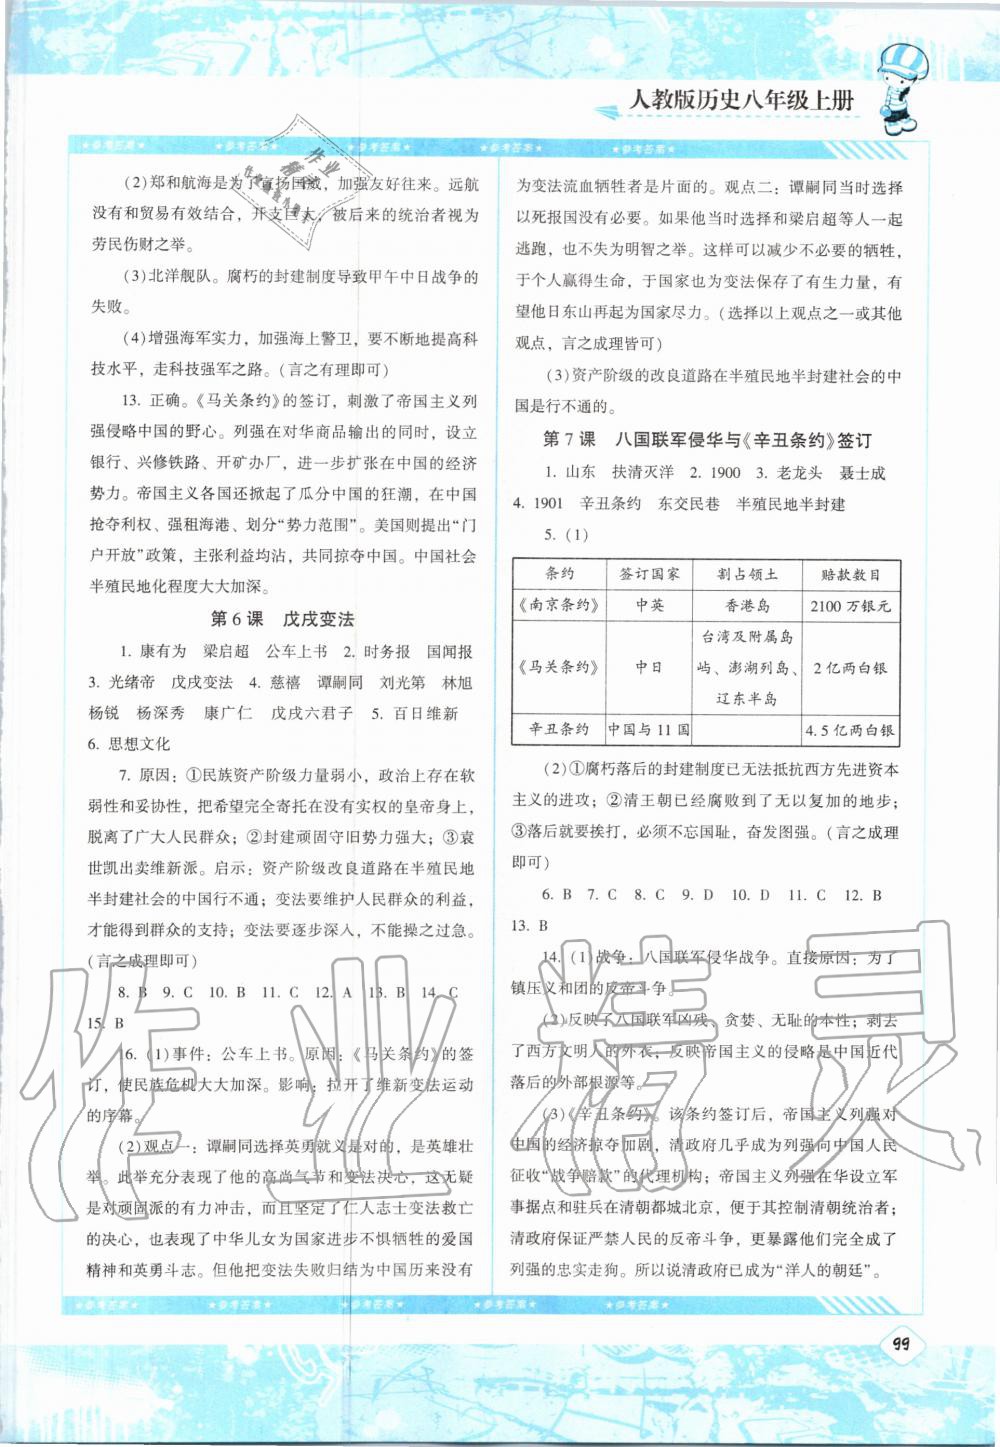 人教版历史八年级上册
★参考答案★ ★参考答案★ ★参考答案★ ★参考答案★ ★参考答案★
(2)郑和航海是为了宣扬国威，加强友好往来。远航
没有和贸易有效结合，开支巨大，被后来的统治者视为
劳民伤财之举。
(3)北洋舰队。腐朽的封建制度导致甲午中日战争的
失败。
(4)增强海军实力，加强海上警卫，要不断地提高科
技水平，走科技强军之路。(言之有理即可)
13. 正确。《马关条约》的签订，刺激了帝国主义列
强侵略中国的野心。列强在对华商品输出的同时，设立
银行、兴修铁路、开矿办厂，进一步扩张在中国的经济
势力。帝国主义各国还掀起了瓜分中国的狂潮，在中国
抢夺利权、强租海港、划分“势力范围”。美国则提出“门
户开放”政策，主张利益均沾，共同掠夺中国。中国社会
半殖民地化程度大大加深。
第 6 课 戊戌变法
1. 康有为 梁启超 公车上书 2. 时务报 国闻报
3. 光绪帝 戊戌变法 4. 慈禧 谭嗣同 刘光第 林旭
杨锐 杨深秀 康广仁 戊戌六君子 5. 百日维新
6. 思想文化
7. 原因：①民族资产阶级力量弱小，政治上存在软
弱性和妥协性，把希望完全寄托在没有实权的皇帝身上，
脱离了广大人民群众；②封建顽固守旧势力强大；③袁
世凯出卖维新派。启示：资产阶级改良道路在半殖民地
半封建社会的中国行不通；变法要维护人民群众的利益，
才能得到群众的支持；变法要逐步深入，不能操之过急。
(言之成理即可)
8. B 9. C 10. B 11. C 12. A 13. B 14. C
15. B
16. (1)事件：公车上书。原因：《马关条约》的签
订，使民族危机大大加深。影响：拉开了维新变法运动
的序幕。
(2)观点一：谭嗣同选择英勇就义是对的，是英雄壮
举。此举充分表现了他的高尚气节和变法决心，这无疑
是对顽固派的有力冲击，而且坚定了仁人志士变法救亡
的决心，也表现了中华儿女为国家进步不惧牺牲的爱国
精神和英勇斗志。但他把变法失败归结为中国历来没有
为变法流血牺牲者是片面的。观点二：谭嗣同当时选择
以死报国没有必要。如果他当时选择和梁启超等人一起
逃跑，也不失为明智之举。这样可以减少不必要的牺牲，
于个人赢得生命，于国家也为变法保存了有生力量，有
望他日东山再起为国家尽力。(选择以上观点之一或其他
观点，言之成理皆可)
(3)资产阶级的改良道路在半殖民地半封建社会的中
国是行不通的。
第 7 课 八国联军侵华与《辛丑条约》签订
1. 山东 扶清灭洋 2. 1900 3. 老龙头 聂士成
4. 1901 辛丑条约 东交民巷 半殖民地半封建
5. (1)
条约 签订国家 割占领土 赔款数目
《南京条约》 中英 香港岛 2100 万银元
台湾及附属岛
《马关条约》 中日 屿、澎湖列岛、 2 亿两白银
辽东半岛
辛丑条约 中国与 11 国 4.5 亿两白银
(2)①腐朽落后的封建制度已无法抵抗西方先进资本
主义的进攻；②清王朝已经腐败到了无以复加的地步；
③落后就要挨打，必须不忘国耻，奋发图强。(言之成理
即可)
6. B 7. C 8. C 9. D 10. D 11. C 12. B
13. B
14. (1)战争：八国联军侵华战争。直接原因：为了
镇压义和团的反帝斗争。
(2)反映了八国联军凶残、贪婪、无耻的本性；剥去
了西方文明人的外衣；反映帝国主义的侵略是中国近代
落后的外部根源等。
(3)《辛丑条约》。该条约签订后，帝国主义列强对
中国的经济掠夺加剧，清政府几乎成为列强向中国人民
征收“战争赔款”的代理机构；帝国主义列强在华设立军
事据点和驻兵在清朝都城北京，便于其控制清朝统治者；
清政府保证严禁人民的反帝斗争，更暴露他们完全成了
列强的忠实走狗。所以说清政府已成为“洋人的朝廷”。
作业精灵
★参考答案★ ★参考答案★ ★参考答案★ ★参考答案★ ★参考答案★
99